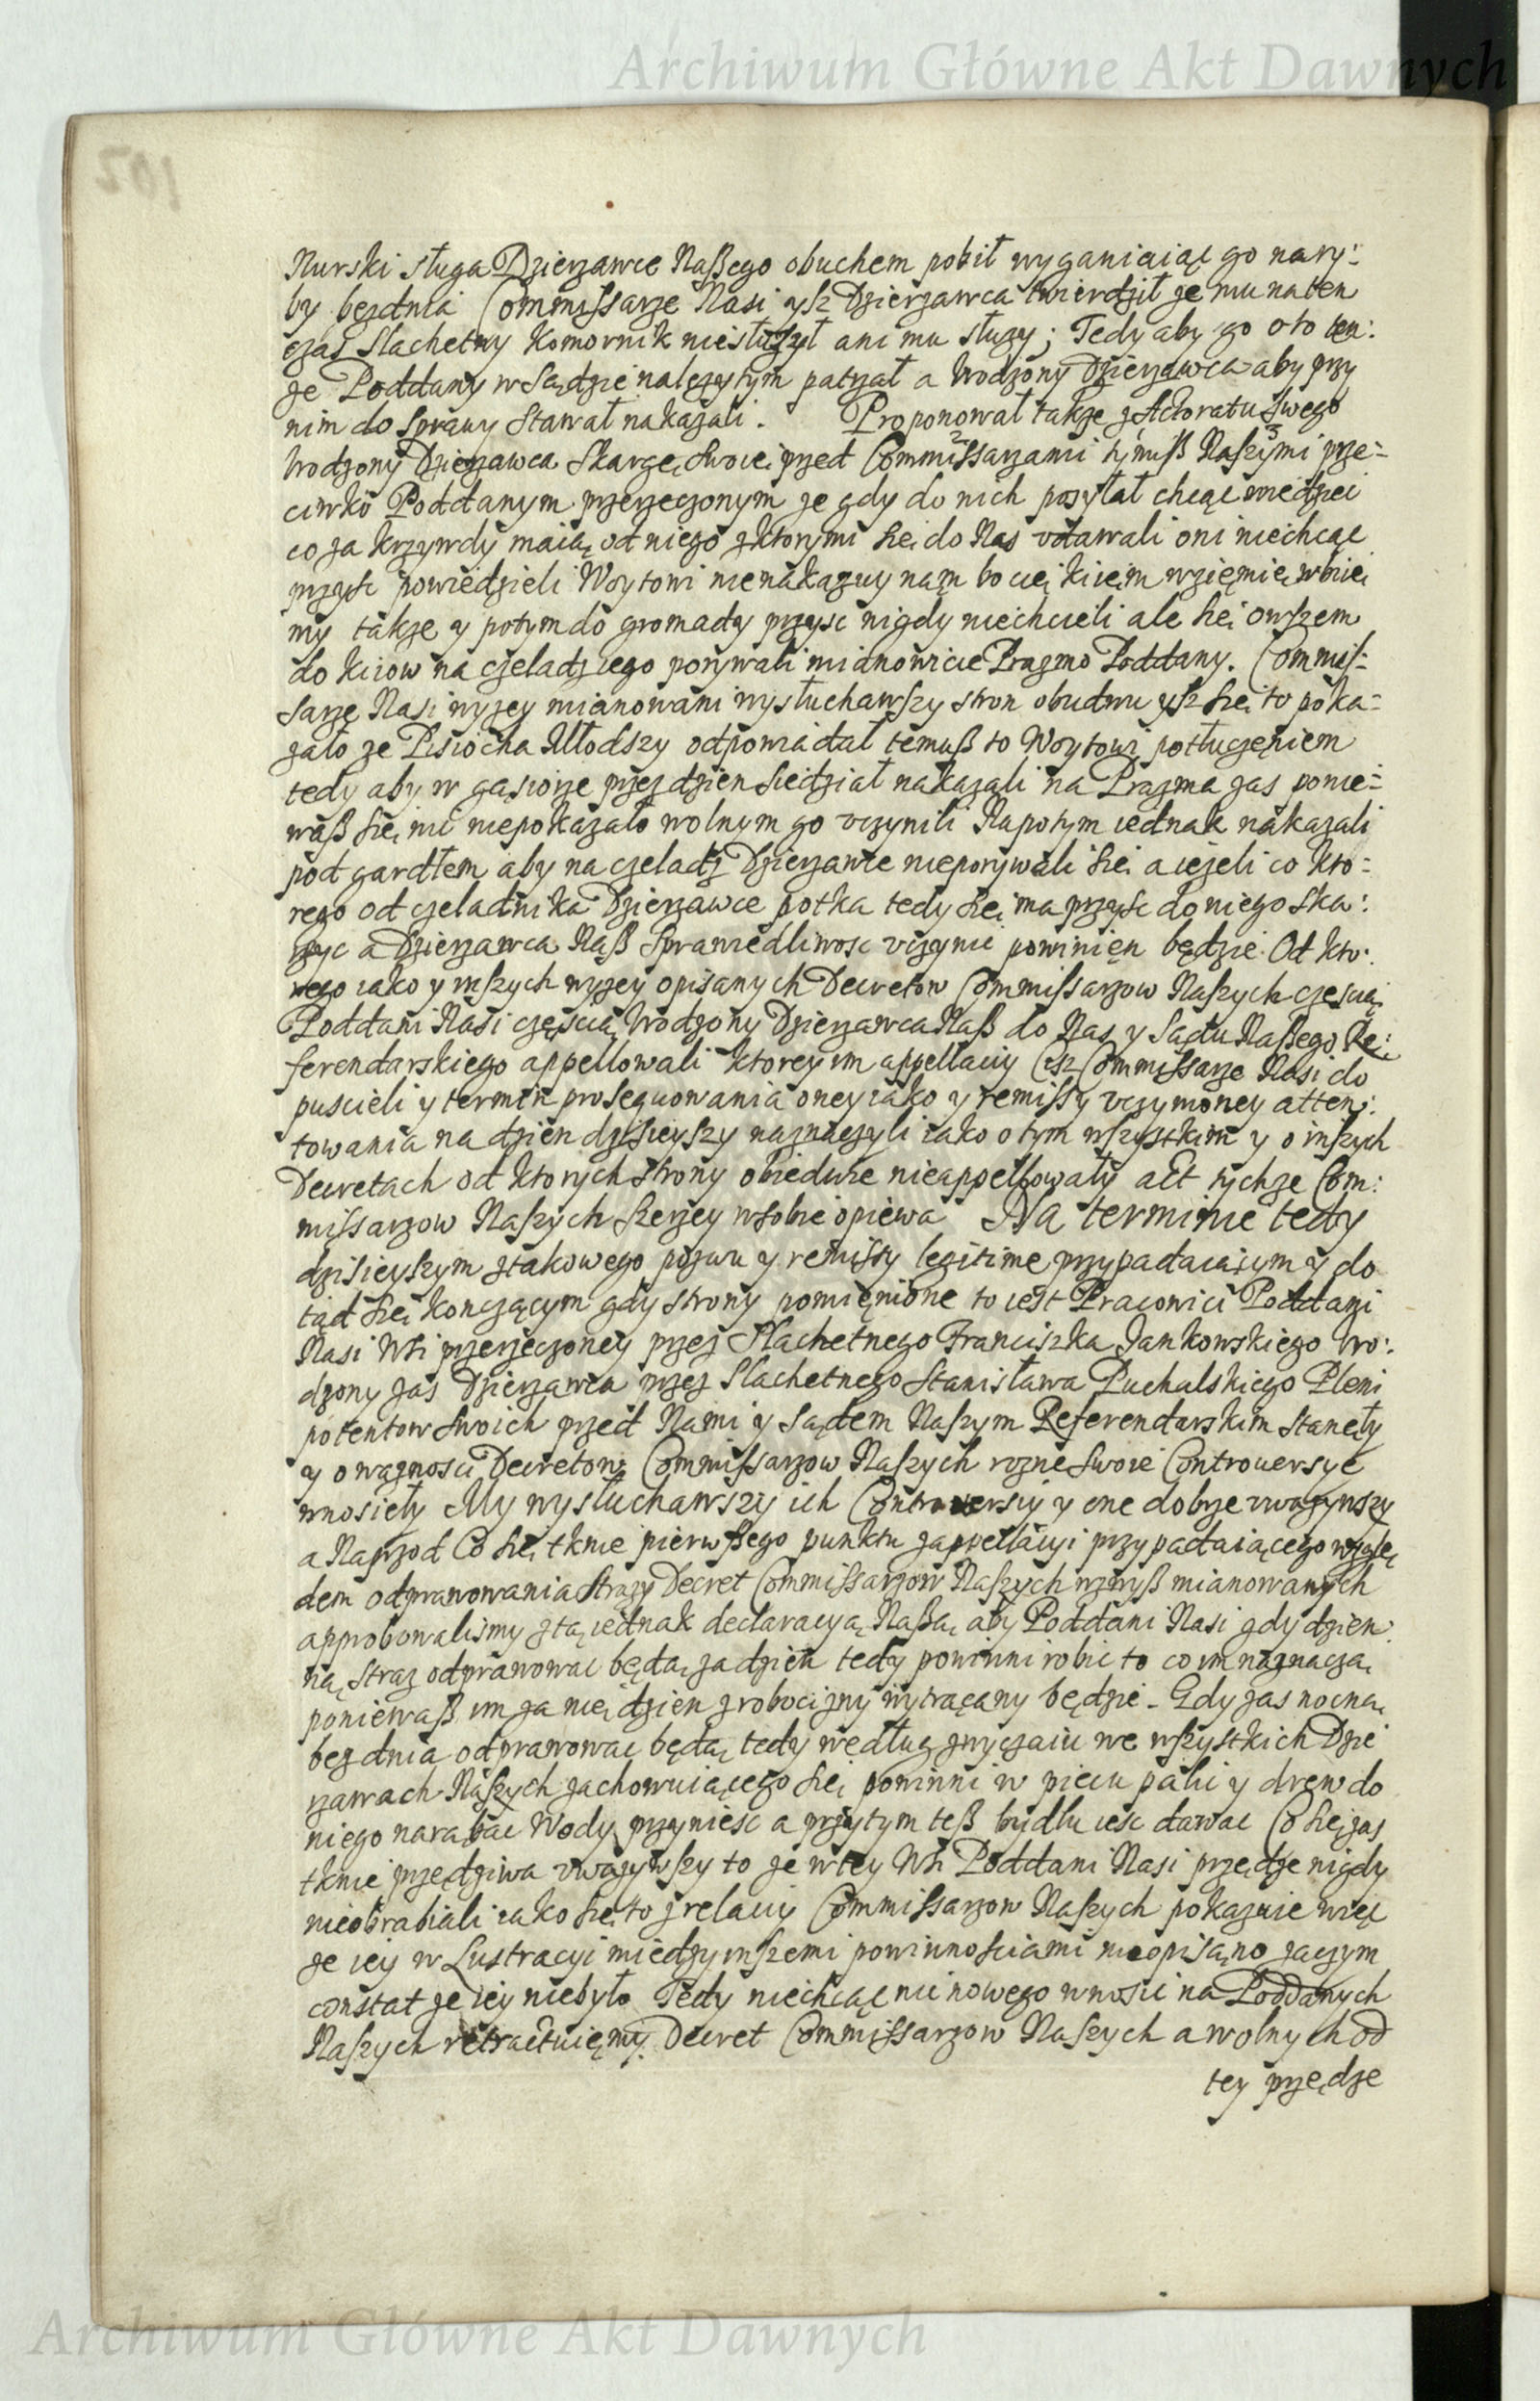 Archiwum Główne Akt Dawnych
102
Nurski sługa Dzierzawce Naßego obuchem pobił wyganiaiąc go na ry:
by bezdnia Commissarze Nasi ysz Dzierzawca twierdził ze mu na ten
czas Slachetny Komornik niesłuzył ani mu słuzy; Tedy aby go o to ten:
ze Poddany w Sądzie nalezytym patrzał a Urodzony Dzierzawca aby przy
nim do sprawy stawał nakazali. Proponował takze z Actoratu swego
Urodzony Dzierzawca Skargę swoię przed Commissarzami tymiß Naszymi prze=
ciwko Poddanym przerzeczonym ze gdy do nich posyłał chcąc wiedziec
co za krzywdy maią od niego z ktorymi się do Nas udawali oni niechcąc
przysc powiedzieli Woytowi nienakazuy nam bo cię kiiem w ziemię wbiie
my takze y potym do gromady przysc nigdy niechcieli ale się owszem
do kiiow na czeladz iego porywali mianowicie Prazmo Poddany. Commis=
sarze Nasi wyzey mianowani wysłuchawszy stron obudwu ysz się to poka=
zało ze Pisiocha Młodszy odpowiadał temuß to Woytowi potłuczęniem
tedy aby w gąsiorze przez dzien siedział nakazali na Prazma zas ponie=
waß się nic niepokazało wolnym go uczynili Napotym iednak nakazali
pod gardłem aby na czeladz Dzierzawce nieporywali się a iezeli co kto=
rego od czeladnika Dzierzawce potka tedy się ma przysc do niego ska:
rzyc a Dzierzawca Naß Sprawiedliwosc uczynic powinięn będzie. Od kto:
rego iako y inszych wyzey opisanych Decretow Commissarzow Naszych częscią
Poddani Nasi częscią Urodzony Dzierzawca Naß do Nas y Sądu Naßego Re:
ferendarskiego appellowali ktorey im appellaciy ciz Commissarze Nasi do
puscieli y termin prosequowania oney iako y remissy uczynioney atten:
towania na dzien dzisieyszy naznaczyli iako o tym wszystkim y o inszych
Decretach od ktorych strony obiedwie nieappellowały act tychze Com:
missarzow Naszych szerzey w sobie opiewa Na terminie tedy
dzisieyszym z takowego pozwu y remissy legitime przypadaiącym y do
tąd się konczącym gdy strony pomięnione to iest Pracowici Poddani
Nasi Wsi przerzeczoney przez Slachetnego Franciszka Jankowskiego Uro:
dzony zas Dzierzawca przez Slachetnego Stanisława Puchalskiego Pleni
potentow swoich przed Nami y Sądem Naszym Referendarskim stanęły
y o wazności Decretow Commissarzow Naszych rozne swoie Controversye
wnosieły My wysłuchawszy ich Controversiy y one dobrze uwazywszy
a Naprzod Co się tknie pierwßego punktu z appellacyi przypadaiącego wzglę
dem odprawowania Strazy Decret Commissarzow Naszych wzwyß mianowanych
approbowalismy z tą iednak declaracyą Naßą aby Poddani Nasi gdy dzien
ną straz odprawowac będą za dzien tedy powinni robic to co im naznaczą
poniewaß im za nię dzien z robocizny wytrącany będzie. Gdy zas nocną
bez dnia odprawowac będą tedy według zwyczaiu we wszystkich Dzie
rzawach Naszych zachowuiącego się powinni w piecu palic y drew do
niego narąbac Wody przyniesc a przytym teß bydłu iesc dawac Co się zas
tknie przędziwa uwazywszy to ze w tey Wsi Poddani Nasi przędze nigdy
nieobrabiali iako się to z relaciy Commissarzow Naszych pokazuie więc
ze iey w Lustracyi miedzy inszemi powinnosciami nieopisano zaczym
constat ze iey niebyło Tedy niechcąc nic nowego wnosic na Poddanych
Naszych retractuięmy Decret Commissarzow Naszych a wolnych od
tey przędze
Archiwum Główne Akt Dawnych